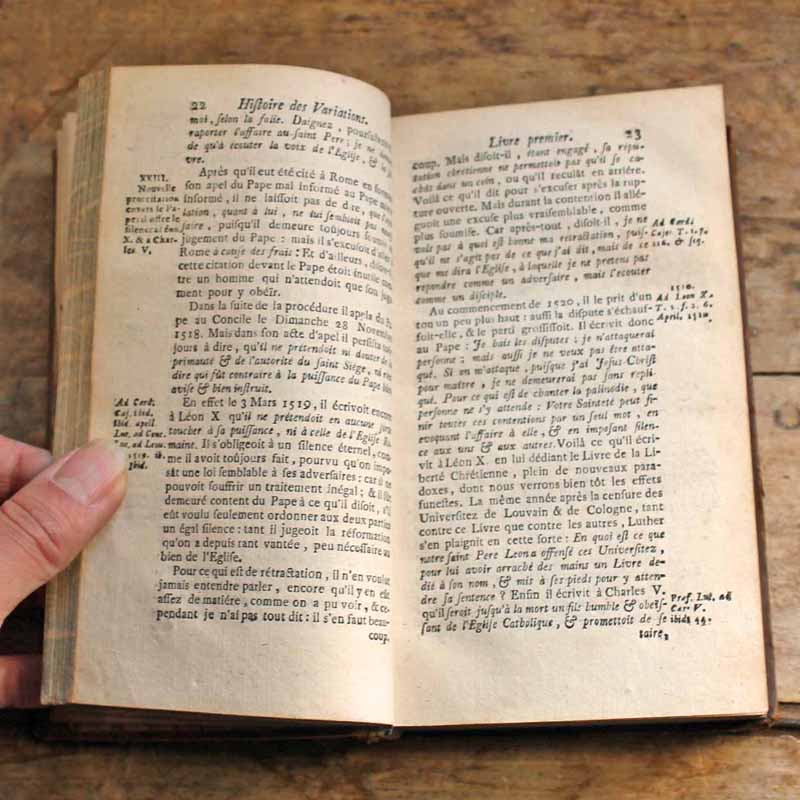 22 Histoire des Variations.
moi, selon la folie. Daignez, pourſuit-il,
raporter l'affaire au ſaint Pere: je ne demande
de qu'à écouter la voix de l'Egliſe, & la ſui-
vre.
XXIII.
Nouvelle
proteſtation
envers le Pape
X. & à Char-
les V.
Après qu'il eut été cité à Rome en forme
ſon apel du Pape mal informé au Pape mieux
informé, il ne laiſſoit pas de dire, que l'apel-
lation, quant à lui, ne lui ſembloit pas néceſ-
ſaire, puiſqu'il demeure toujours ſoumis au
jugement du Pape: mais il s'excuſoit d'aller à
Rome à cauſe des frais: Et d'ailleurs, diſoit-il,
cette citation devant le Pape étoit inutile con-
tre un homme qui n'attendoit que ſon juge-
ment pour y obéïr.
Dans la ſuite de la procédure il apela du Pa-
pe au Concile le Dimanche 28 Novembre
1518. Mais dans ſon acte d'apel il perſiſta toû-
jours à dire, qu'il ne prétendoit ni douter de la
primauté & de l'autorité du ſaint Siége, ni rien
dire qui fût contraire à la puiſſance du Pape bien
aviſé & bien inſtruit.
Ad Card.
Caj. ibid.
Ibid. apell.
Lut. ad Conc.
Lut. ad Leon.
1519. ibid.
Ibid.
En effet le 3 Mars 1519, il écrivoit encore
à Léon X qu'il ne prétendoit en aucune ſorte
toucher à ſa puiſſance, ni à celle de l'Egliſe Ro-
maine. Il s'obligeoit à un ſilence éternel, com-
me il avoit toûjours fait, pourvu qu'on impo-
sât une loi ſemblable à ſes adverſaires: car il ne
pouvoit ſouffrir un traitement inégal; & il fût
demeuré content du Pape à ce qu'il diſoit, s'il
eût voulu ſeulement ordonner aux deux partis
un égal ſilence: tant il jugeoit la réformation
qu'on a depuis tant vantée, peu néceſſaire au
bien de l'Egliſe.
Pour ce qui eſt de rétractation, il n'en voulut
jamais entendre parler, encore qu'il y en eût
aſſez de matiére, comme on a pu voir, & ce-
pendant je n'ai pas tout dit: il s'en faut beau-
coup.
Livre premier. 23
coup. Mais diſoit-il, étant engagé, ſa répu-
tation chrétienne ne permettoit pas qu'il ſe ca-
chât dans un coin, ou qu'il reculât en arriére.
Voilà ce qu'il dit pour s'excuſer après la rup-
ture ouverte. Mais durant la contention il allé-
guoit une excuſe plus vraiſemblable, comme
plus ſoumiſe. Car après-tout, diſoit-il, je ne
vois pas à quoi eſt bonne ma rétractation, puiſ-
qu'il ne s'agit pas de ce que j'ai dit, mais de ce
que me dira l'Egliſe, à laquelle je ne prétens pas
répondre comme un adverſaire, mais l'écouter
comme un diſciple.
Ad Card.
Cajet. T. 1. p.
216. & ſeq.
Au commencement de 1520, il le prit d'un
ton un peu plus haut: auſſi la diſpute s'échauf-
foit-elle, & le parti groſſiſſoit. Il écrivit donc
au Pape: Je hais les diſputes; je n'attaquerai
perſonne: mais auſſi je ne veux pas être atta-
qué. Si on m'attaque, puiſque j'ai Jeſus-Chriſt
pour maître, je ne demeurerai pas ſans répli-
que. Pour ce qui eſt de chanter la palinodie, que
perſonne ne s'y attende: Votre Sainteté peut fi-
nir toutes ces contentions par un ſeul mot, en
évoquant l'affaire à elle, & en impoſant ſilen-
ce aux uns & aux autres. Voilà ce qu'il écri-
vit à Léon X. en lui dédiant le Livre de la Li-
berté Chrétienne, plein de nouveaux para-
doxes, dont nous verrons bien tôt les effets
funeſtes. La même année après la cenſure des
Univerſitez de Louvain & de Cologne, tant
contre ce Livre que contre les autres, Luther
s'en plaignit en cette ſorte: En quoi eſt ce que
notre ſaint Pere Leon a offenſé ces Univerſitez,
pour lui avoir arraché des mains un Livre dé-
dié à ſon nom, & mis à ſes pieds pour y atten-
dre ſa ſentence? Enfin il écrivit à Charles V.
qu'il ſeroit juſqu'à la mort un fils humble & obéïſ-
ſant de l'Egliſe Catholique, & promettoit de ſe
taire,
1520.
Ad Leon X.
T. 1. f. 2. 6.
April, 1520.
Prof. Lut. ad
Car. V.
ibid. 44.